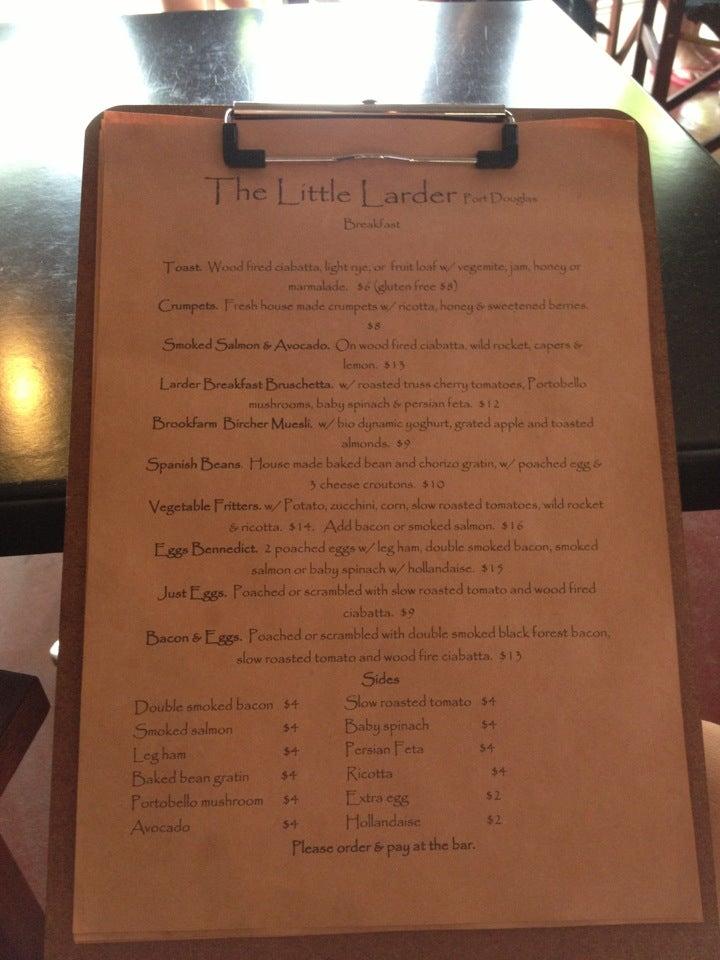 The Little Larder Port Douglas
Breakfast
Toast. Wood fired ciabatta, light rye, or fruit loaf w/ vegemite, jam, honey or
marmalade. $6 (gluten free $8)
Crumpets. Fresh house made crumpets w/ ricotta, honey & sweetened berries.
$8
Smoked Salmon & Avocado. On wood fired ciabatta, wild rocket, capers &
lemon. $13
Larder Breakfast Bruschetta. w/ roasted truss cherry tomatoes, Portobello
mushrooms, baby spinach & persian feta. $12
Brookfarm Bircher Muesli. w/ bio dynamic yoghurt, grated apple and toasted
almonds. $9
Spanish Beans. House made baked bean and chorizo gratin, w/ poached egg &
3 cheese croutons. $10
Vegetable Fritters. w/ Potato, zucchini, corn, slow roasted tomatoes, wild rocket
& ricotta. $14. Add bacon or smoked salmon. $16
Eggs Bennedict. 2 poached eggs w/ leg ham, double smoked bacon, smoked
salmon or baby spinach w/ hollandaise. $15
Just Eggs. Poached or scrambled with slow roasted tomato and wood fired
ciabatta. $9
Bacon & Eggs. Poached or scrambled with double smoked black forest bacon,
slow roasted tomato and wood fire ciabatta. $13
Sides
Double smoked bacon $4
Smoked salmon $4
Leg ham $4
Baked bean gratin $4
Portobello mushroom $4
Avocado $4
Slow roasted tomato $4
Baby spinach $4
Persian Feta $4
Ricotta $4
Extra egg $2
Hollandaise $2
Please order & pay at the bar.